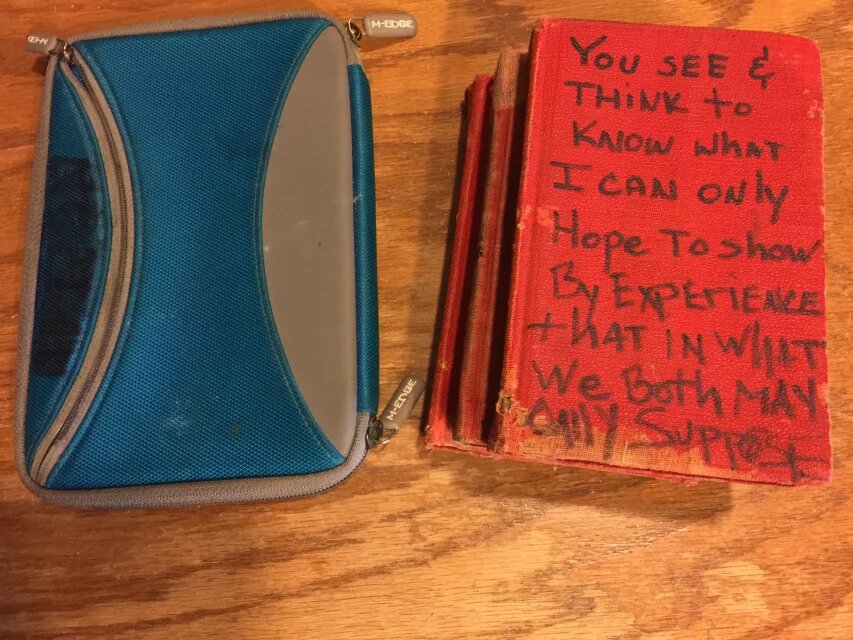 M-EDGE
M-EDGE
M-EDGE
YOU SEE &
THINK to
KNOW wHAT
I CAN ONly
HoPE To SHOW
By EXPERIENCE
tHAT IN WHAT
We BotH MAY
ONly SuPPOSE